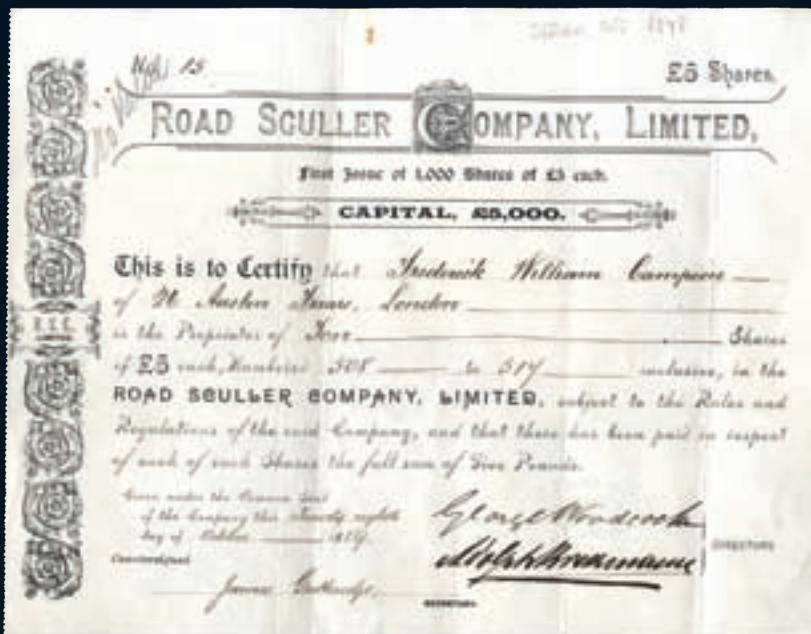 No. 15
£5 Shares.
ROAD SCULLER COMPANY, LIMITED,
First Issue of 1,000 Shares of £5 each.
CAPITAL, £5,000.
This is to Certify that Frederick William Campion
of Austin Friars, London
is the Proprietor of Ten Shares
of £5 each, Numbered 508 to 517 inclusive, in the
ROAD SCULLER COMPANY, LIMITED, subject to the Rules and
Regulations of the said Company, and that there has been paid in respect
of each of such Shares the full sum of Five Pounds.
Given under the Common Seal
of the Company this twenty eighth
day of October
George Woodcock
DIRECTORS
Countersigned
James
SECRETARY.